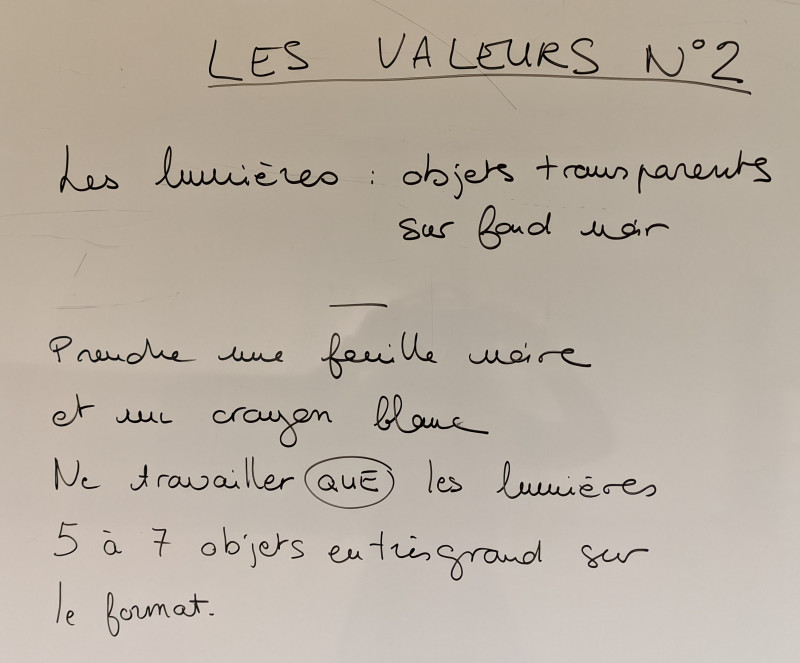 LES VALEURS N°2
Les lumières : objets transparents
sur fond noir
Prendre une feuille noire
et un crayon blanc
Ne travailler QUE les lumières
5 à 7 objets en très grand sur
le format.